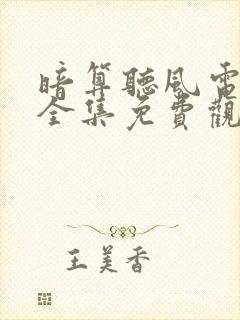 暗算聽風電
全集免費觀
王美香